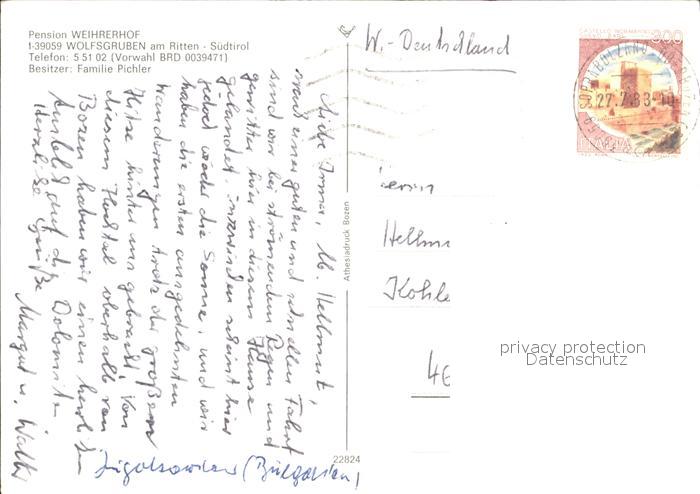 Pension WEIHRERHOF
I-39059 WOLFSGRUBEN am Ritten - Südtirol
Telefon: 5 51 02 (Vorwahl BRD 0039471)
Besitzer: Familie Pichler
W.-Deutschland
300
27.7.83-10
ITALIA
Liebe Irma, lb. Hellmut,
nach einer guten und schnellen Fahrt
sind wir bei strömendem Regen und
Gewitter hier in diesem Hause
gelandet. Inzwischen scheint hier
jedoch wieder die Sonne, und wir
haben die ersten ausgedehnten
Wanderungen trotz der großen
Hitze hinter uns gebracht. Von
diesem Hochtal oberhalb von
Bozen haben wir einen herrlichen
Ausblick auf die Dolomiten
Herzliche Grüße
Margut u. Walter
(Bulgarien)
Athesiadruck Bozen
22824
Hellm
Kohle
46
privacy protection
Datenschutz